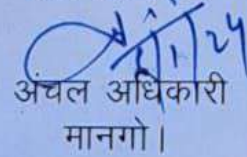 2/1/24
अंचल अधिकारी
मानगो।